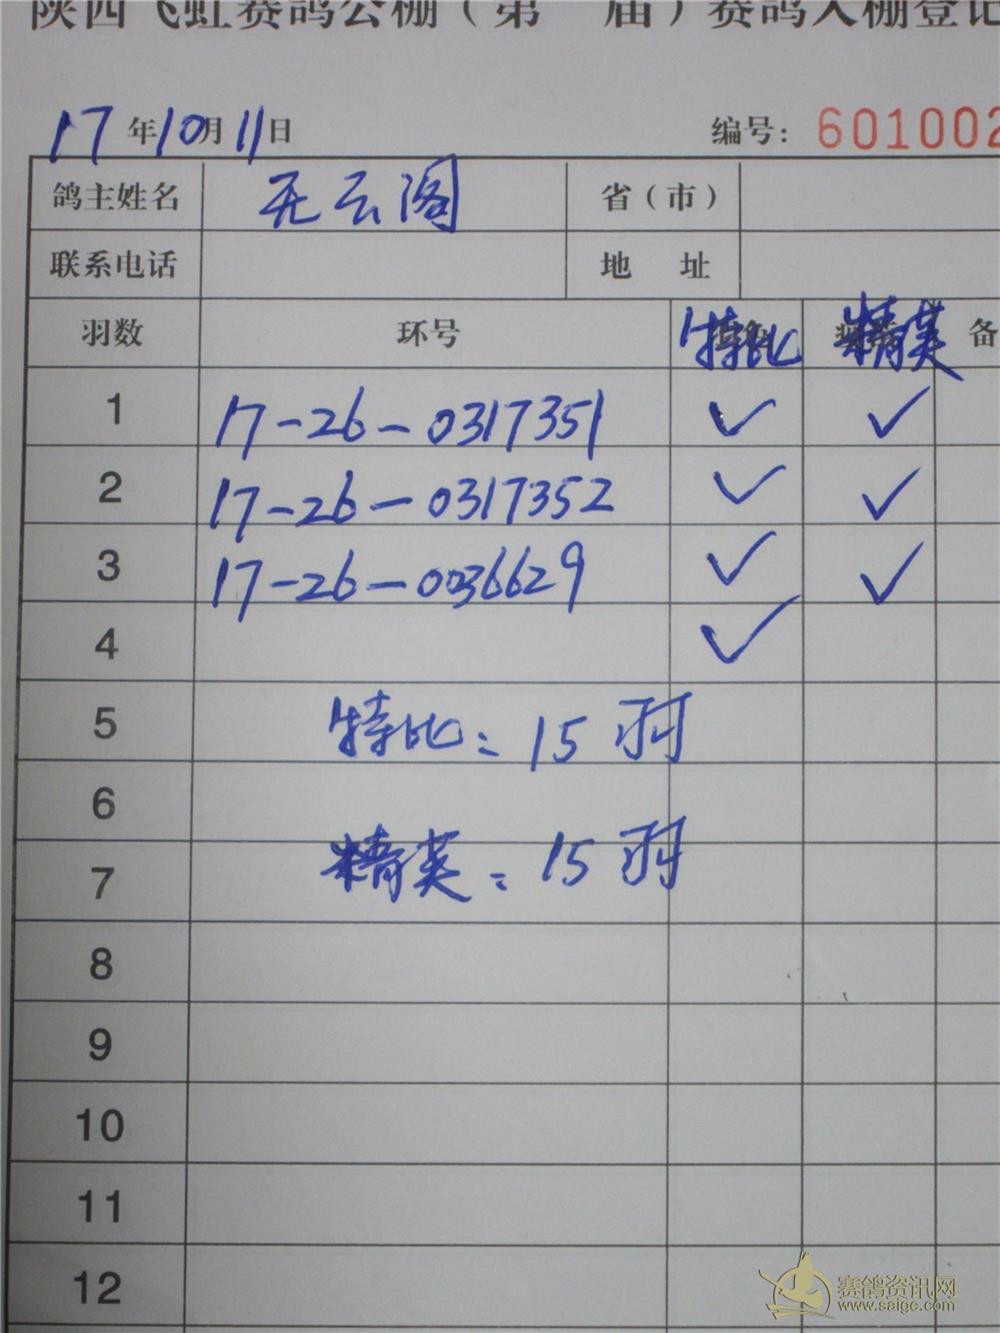 陕西飞虹赛鸽公棚（第 届）赛鸽入棚登记
17年10月11日 编号: 601002
鸽主姓名 无云阁 省（市）
联系电话 地 址
羽数 环号 特比 精英 备
1 17-26-0317351 ✓ ✓
2 17-26-0317352 ✓ ✓
3 17-26-0036629 ✓ ✓
4 ✓
5 特比: 15羽
6
7 精英: 15羽
8
9
10
11
12
赛鸽资讯网
www.saigc.com